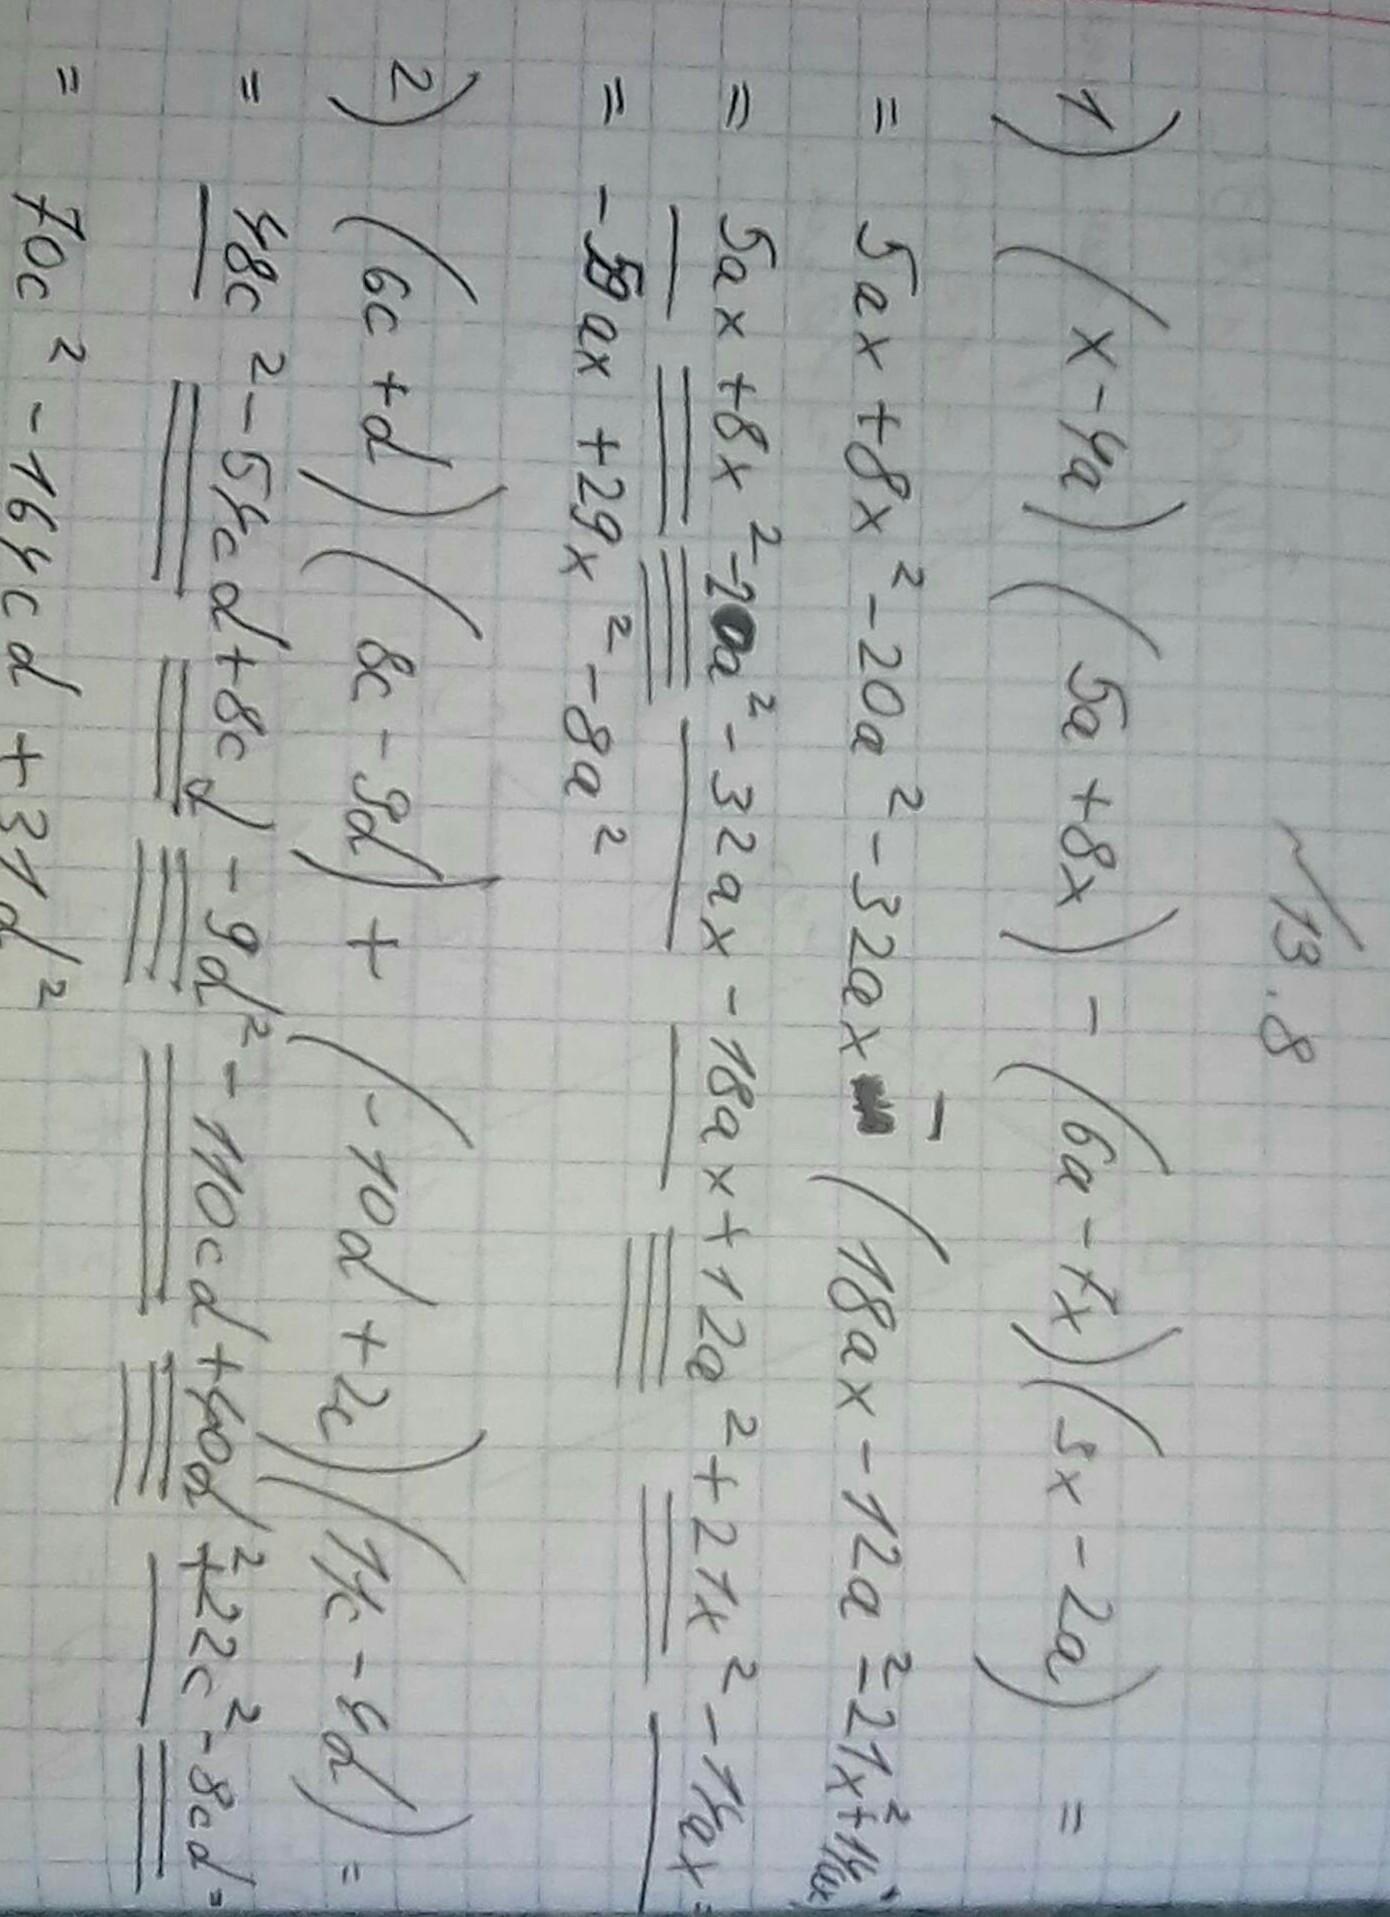 №13.8
1) (x-4a)(5a+8x)-(6a-7x)(3x-2a)=
=5ax+8x²-20a²-32ax-(18ax-12a²-21x²+14ax)=
=5ax+8x²-20a²-32ax-18ax+12a²+21x²-14ax=
=-59ax+29x²-8a²
2) (6c+d)(8c-9d)+(-10d+2c)(11c-4d)=
=48c²-54cd+8cd-9d²-110cd+40d²+22c²-8cd=
=70c²-164cd+31d²